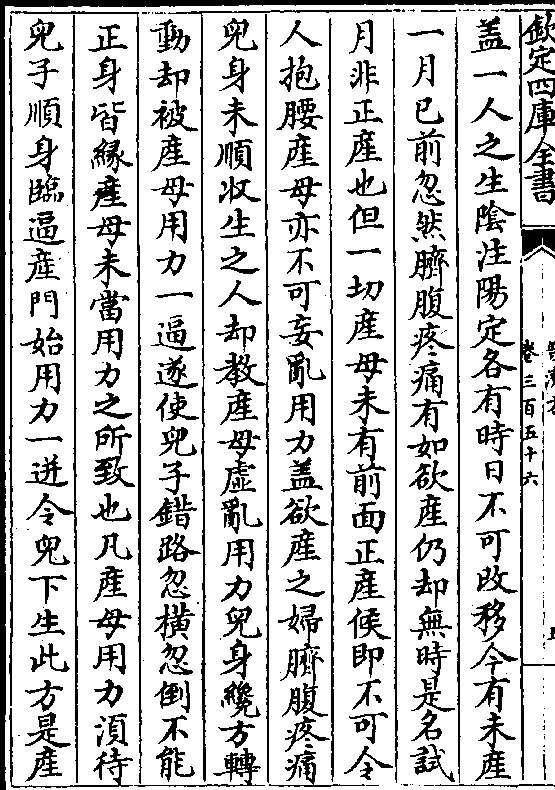 欽定四庫全書
卷三百五十六
蓋一人之生陰注陽定各有時日不可改移今有未産
一月已前忽然臍腹疼痛有如欲産仍却無時是名試
月非正産也但一切産母未有前面正産候即不可令
人抱腰産母亦不可妄亂用力蓋欲産之婦臍腹疼痛
兒身未順收生之人却教産母虛亂用力兒身纔方轉
動却被産母用力一逼遂使兒子錯路忽橫忽倒不能
正身皆緣産母未當用力之所致也凡産母用力須待
兒子順身臨逼産門始用力一迸令兒下生此方是産